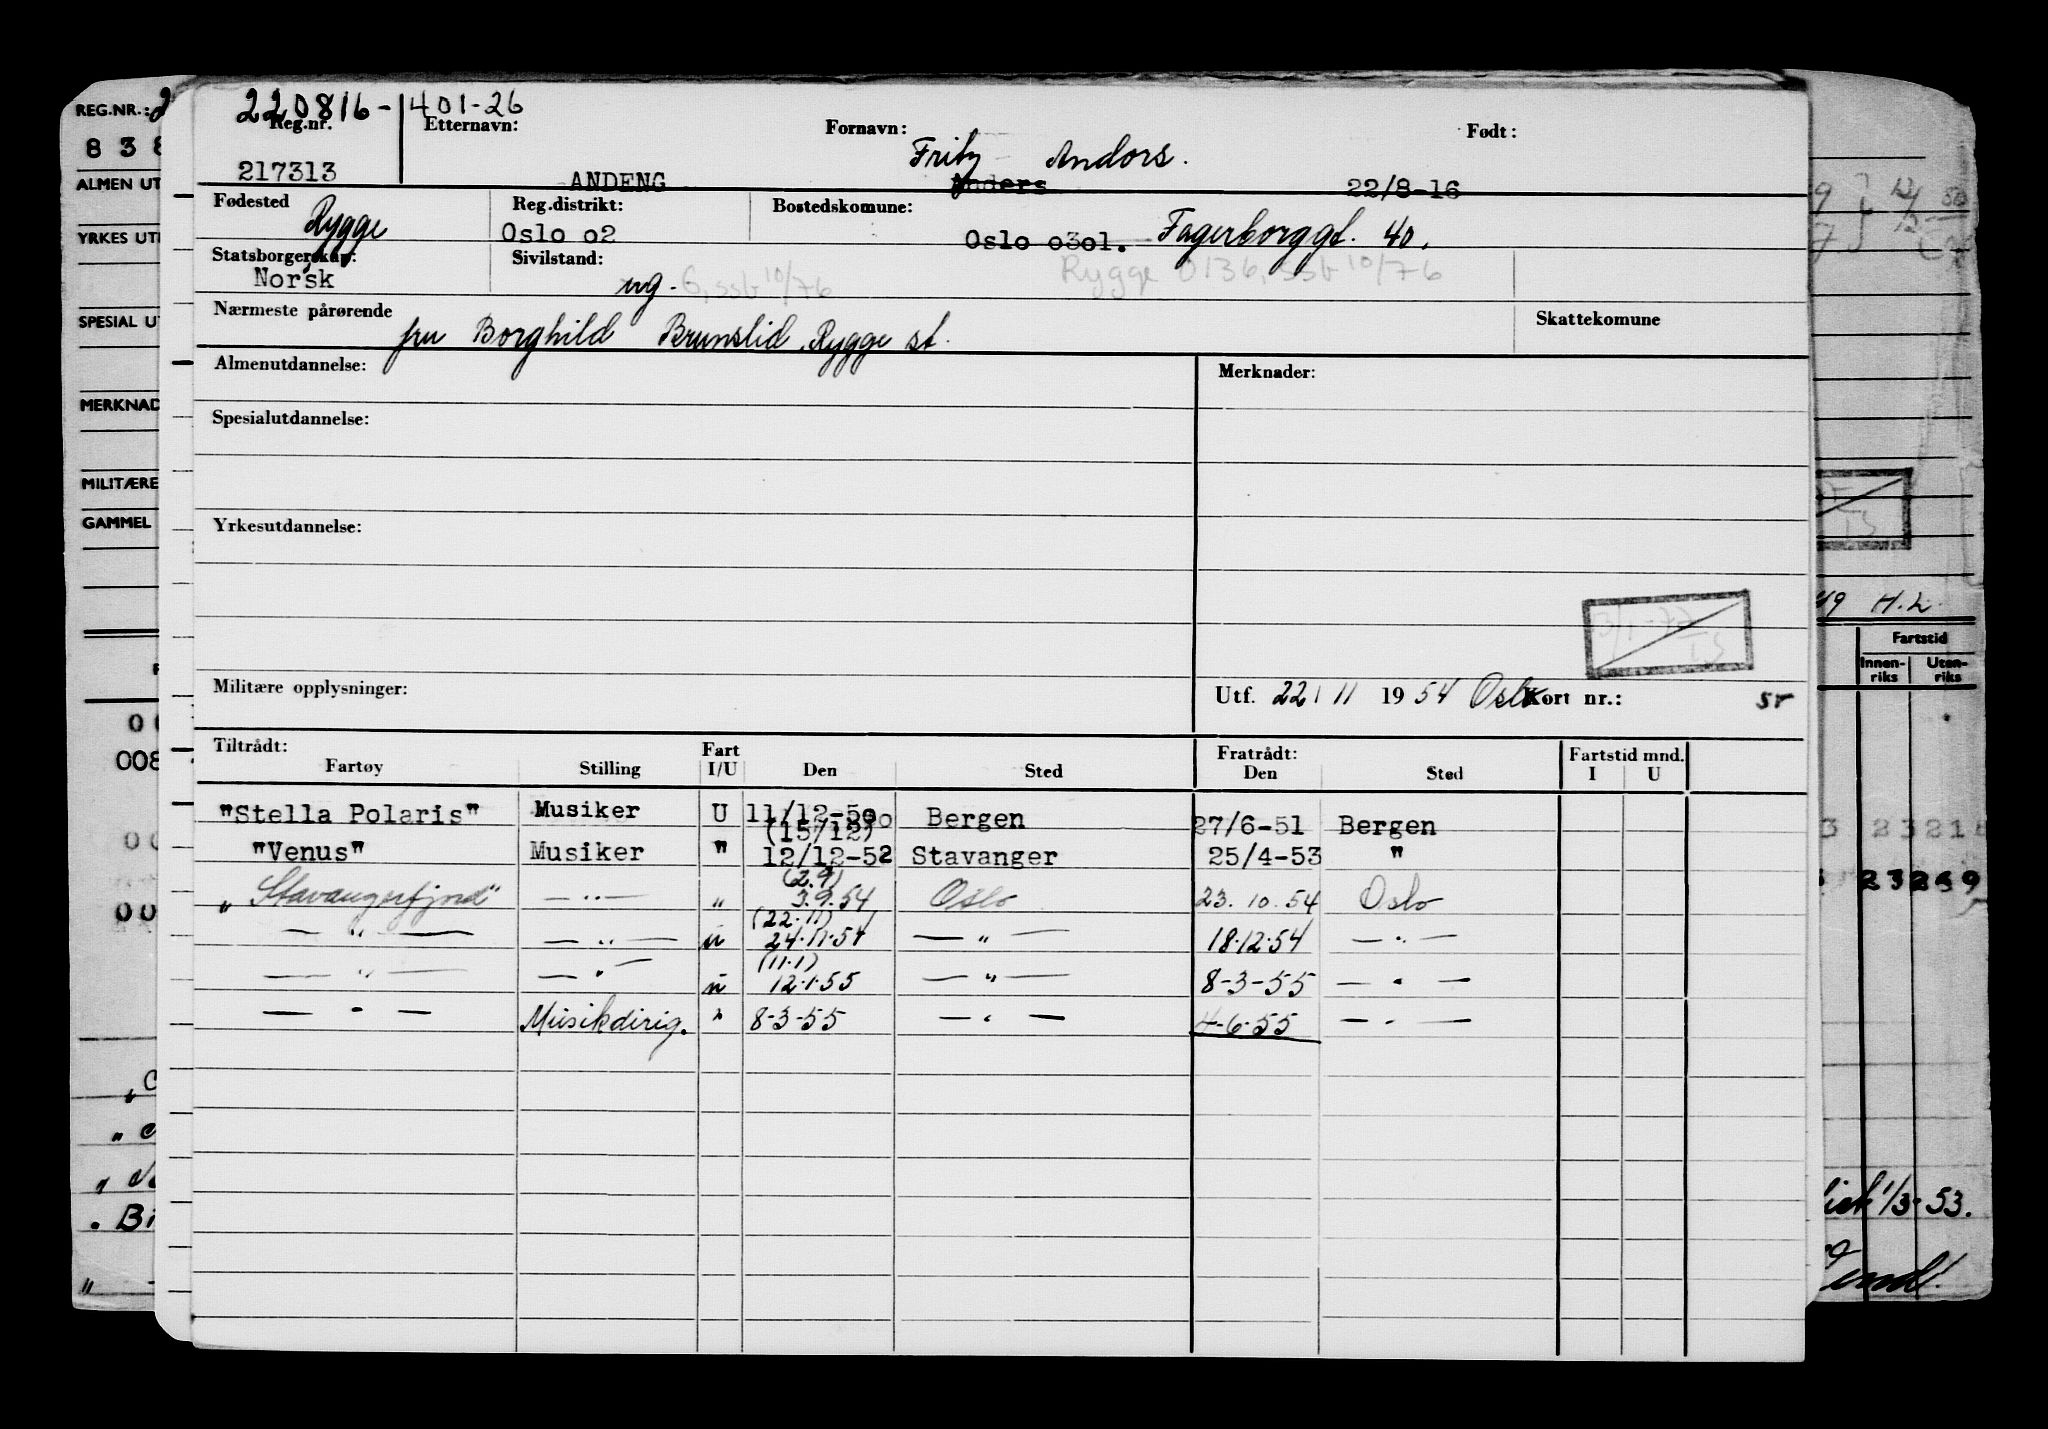 220816-401-26
Reg.nr. Etternavn: Fornavn: Født:
Fritz Andors.
217313 ANDENG Anders 22/8-16
Fødested Reg.distrikt: Bostedskomune:
Rygge Oslo o2 Oslo o3o1. Fagerborggt. 40.
Statsborgerskap: Sivilstand:
Norsk ug. 6, ssb 10/76 Rygge 0136, ssb 10/76
Nærmeste pårørende Skattekomune
fru Borghild Brunslid, Rygge st.
Almenutdannelse: Merknader:
Spesialutdannelse:
Yrkesutdannelse:
Militære opplysninger: Utf. 22/11 1954 Oslo Kort nr.:
Tiltrådt: Fart Fratrådt: Fartstid mnd.
Fartøy Stilling I/U Den Sted Den Sted I U
"Stella Polaris" Musiker U 11/12-50 Bergen 27/6-51 Bergen
(15/12)
"Venus" Musiker " 12/12-52 Stavanger 25/4-53 "
(2.9)
"Stavangerfjord" — " — " 3.9.54 Oslo 23.10.54 Oslo
(22.11)
— " — — " — u 24.11.54 — " — 18.12.54 — " —
(11.1)
— " — — " — u 12.1.55 — " — 8-3-55 — " —
— " — Musikdirig. " 8-3-55 — " — 4-6-55 — " —
REG.NR.: 2
8 3 8
ALMEN UT
YRKES UT
SPESIAL UT
MERKNAD
MILITÆRE
GAMMEL
008
. Bi
49 H.L.
Fartstid
Innen-riks Uten-riks
23218
23249
1/3-53.